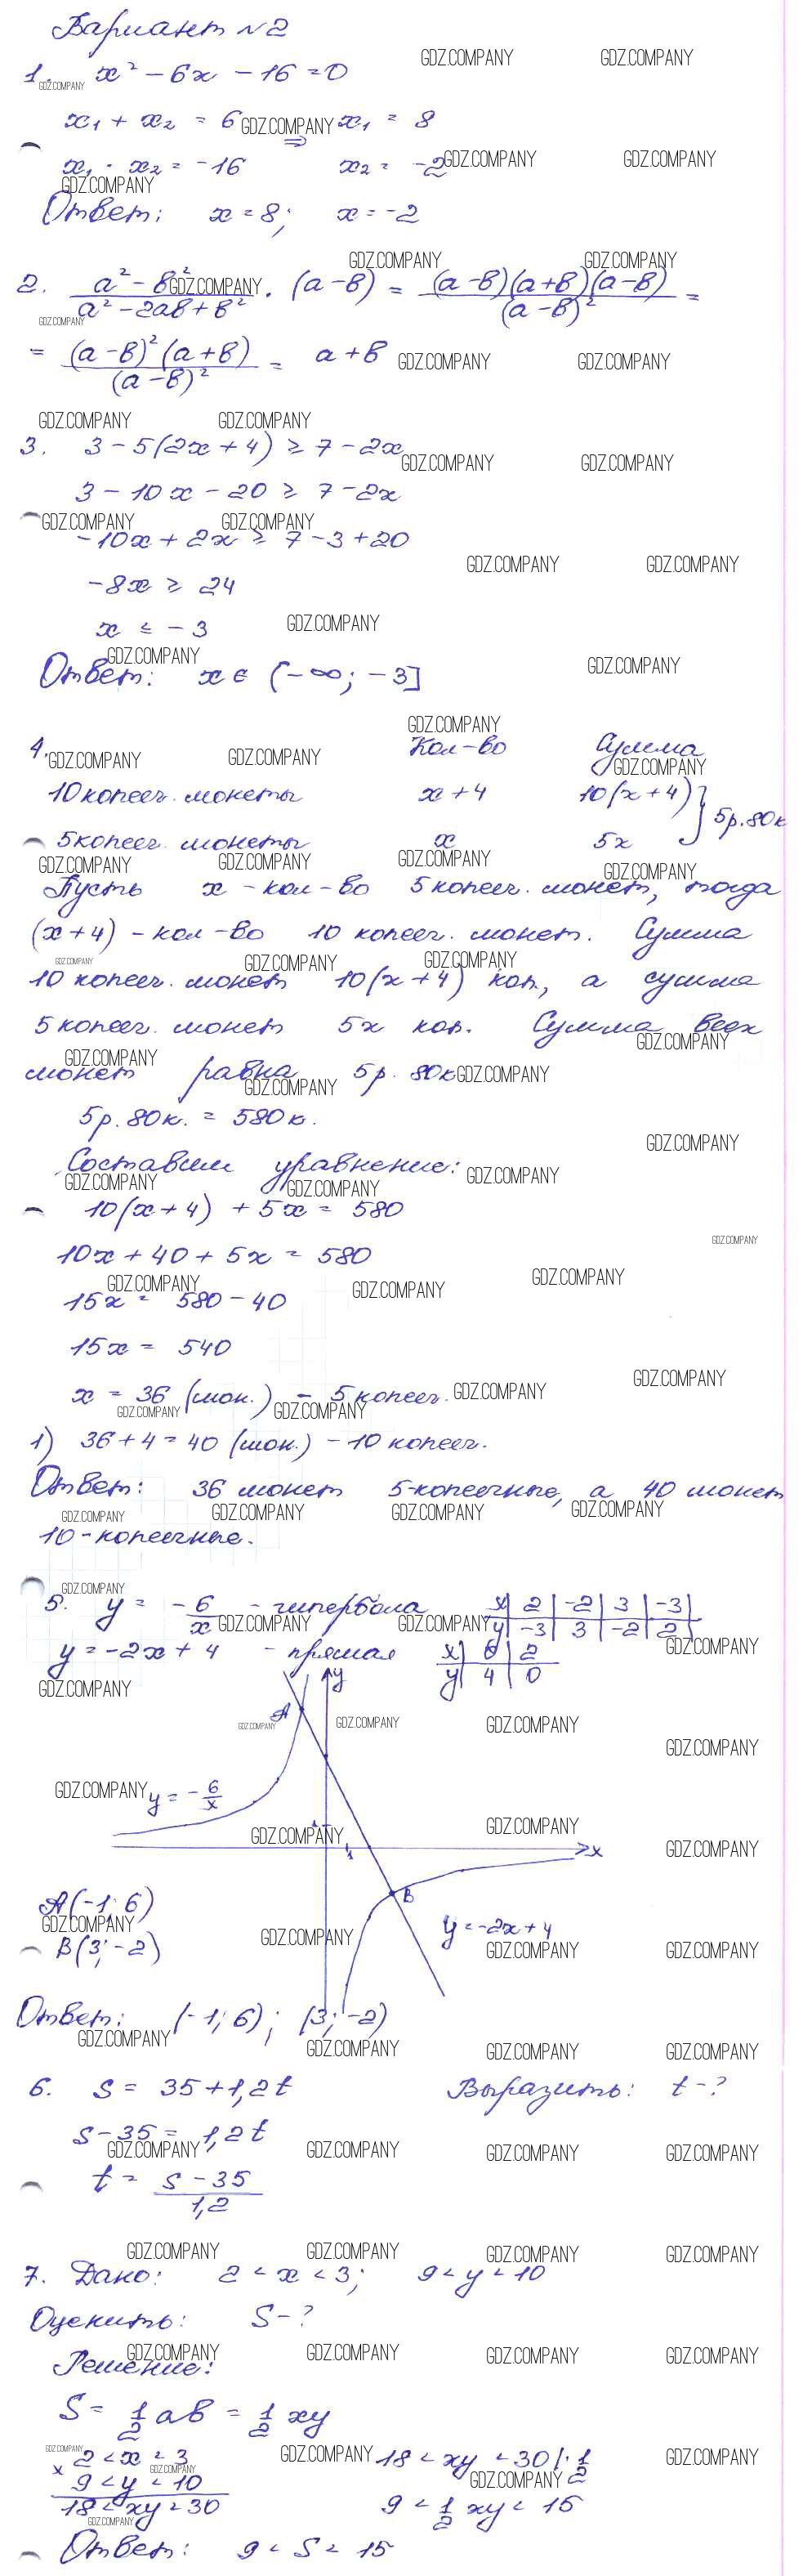 Вариант №2
1. x² - 6x - 16 = 0
x₁ + x₂ = 6 ⇒ x₁ = 8
x₁ · x₂ = -16 x₂ = -2
Ответ: x = 8; x = -2
2. (a² - b²)/(a² - 2ab + b²) · (a - b) = ((a - b)(a + b)(a - b))/(a - b)² =
= ((a - b)²(a + b))/(a - b)² = a + b
3. 3 - 5(2x + 4) ≥ 7 - 2x
3 - 10x - 20 ≥ 7 - 2x
-10x + 2x ≥ 7 - 3 + 20
-8x ≥ 24
x ≤ -3
Ответ: x ∈ (-∞; -3]
4. Кол-во Сумма
10 копееч. монеты x + 4 10(x + 4)
5 копееч. монеты x 5x } 5р. 80к
Пусть x - кол-во 5 копееч. монет, тогда
(x + 4) - кол-во 10 копееч. монет. Сумма
10 копееч. монет 10(x + 4) коп, а сумма
5 копееч. монет 5x коп. Сумма всех
монет равна 5р. 80к
5р. 80к. = 580к.
Составим уравнение:
10(x + 4) + 5x = 580
10x + 40 + 5x = 580
15x = 580 - 40
15x = 540
x = 36 (мон.) - 5 копееч.
1) 36 + 4 = 40 (мон.) - 10 копееч.
Ответ: 36 монет 5-копеечные, а 40 монет
10-копеечные.
5. y = -6/x - гипербола x | 2 | -2 | 3 | -3 |
y | -3 | 3 | -2 | 2 |
y = -2x + 4 - прямая x | 0 | 2
y | 4 | 0
y
A
y = -6/x
1
1
x
B
A(-1; 6)
y = -2x + 4
B(3; -2)
Ответ: (-1; 6); (3; -2)
6. S = 35 + 1,2t Выразить: t - ?
S - 35 = 1,2t
t = (S - 35)/1,2
7. Дано: 2 < x < 3; 9 < y < 10
Оценить: S - ?
Решение:
S = 1/2 ab = 1/2 xy
2 < x < 3 18 < xy < 30 | · 1/2
× 9 < y < 10
18 < xy < 30 9 < 1/2 xy < 15
Ответ: 9 < S < 15
GDZ.COMPANY